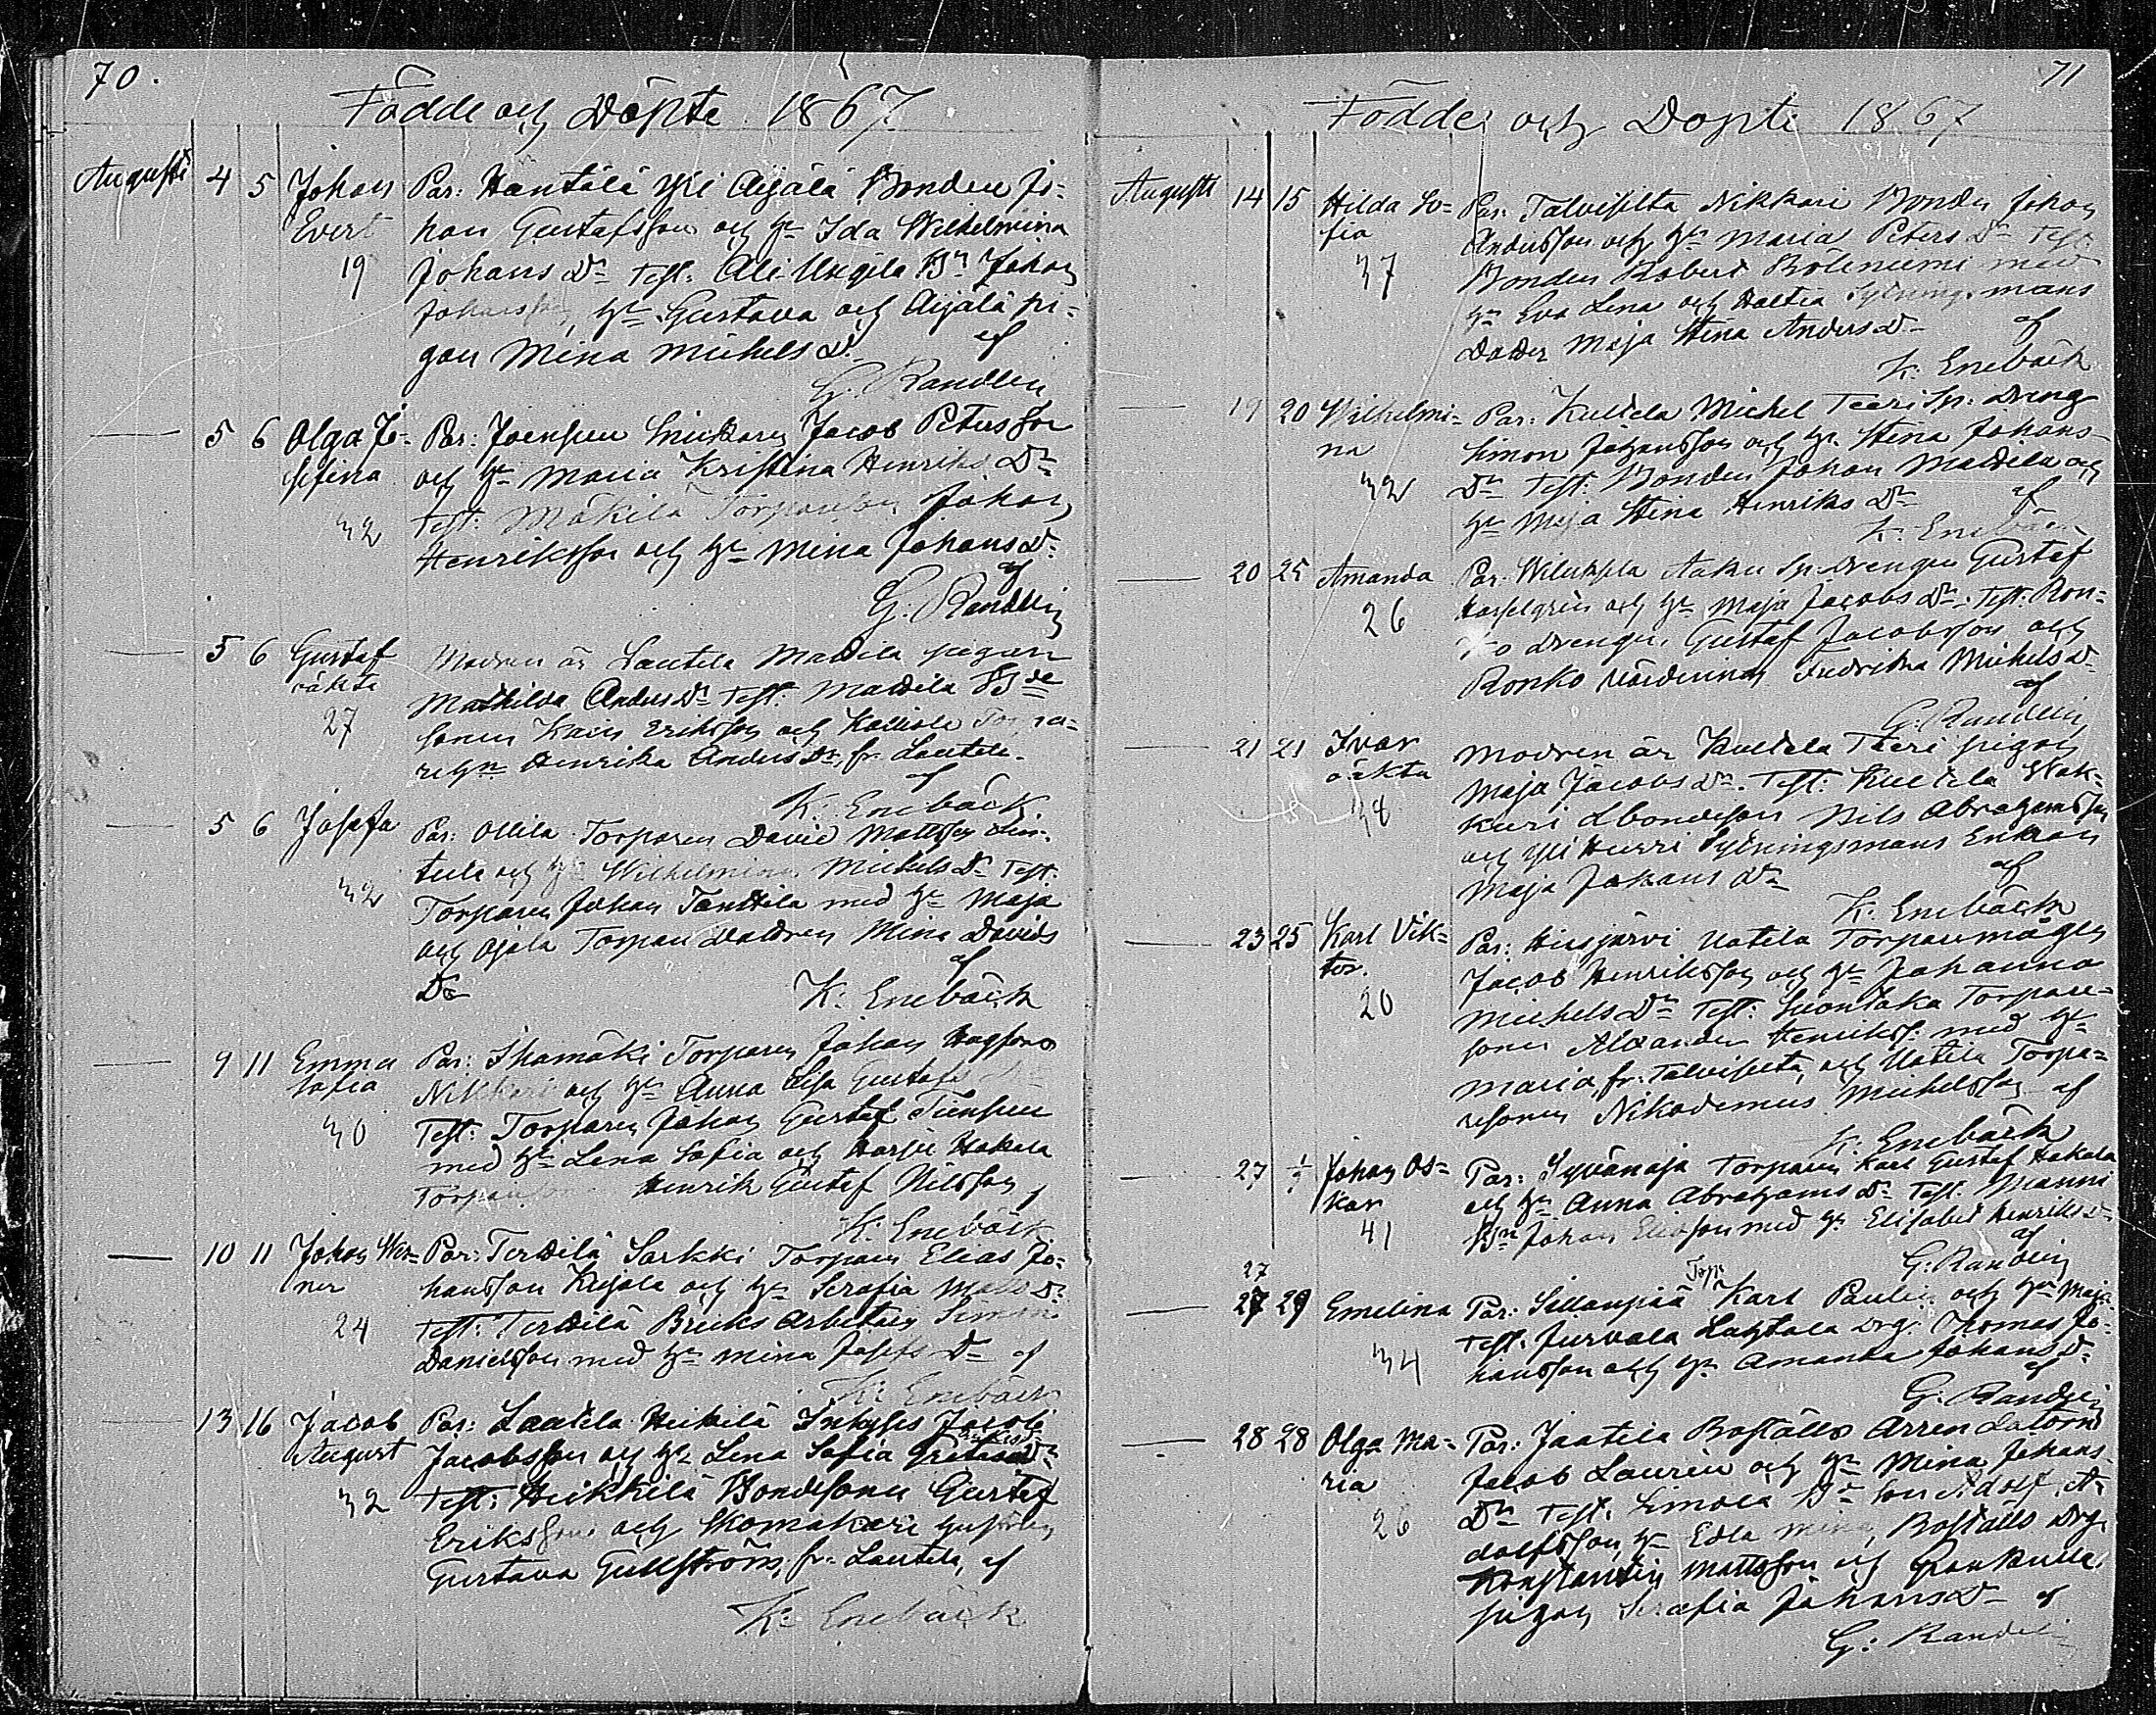 70.
Födde och Döpte 1867.
Augusti 4 5 Johan Par: Hantälä Yli Äijälä Bonden Jo=
Evert han Gustafsson och h:u Ida Wilhelmina
19 Johans D:r Test: Ali Ungila B:n Johan
Johansson, h:u Gustava och Äijälä pi=
gan Mina Michels D. af
G. Randelin
— 5 6 Olga Jo= Par: Joensuu Snickaren Jacob Petersson
sefina och h:u Maria Kristina Henriks D:r
32 Test: Mäkilä Torpareson Johan
Henriksson och h:u Mina Johans D:
af
G. Randelin
— 5 6 Gustaf Modren är Lautela Mattila pigan
oäkta Mathilda Anders D:r Test: Mattila B:de
27 sonen Eriksson och
re h:n Henrika Anders D:r, fr. Lautela.
af
K. Enebäck
— 5 6 Josefa Par: Ollila Torparen David Mattsson
tula och h:u Wilhelmina Michels D:r Test:
32 Torparen Johan Tanttila med h:u Maja
och Ojala Torpare dottren Mina Davids
D:r af
K. Enebäck
— 9 11 Emma Par: Ihamäki Torparen Johan
Sofia Nikkari och h:u Anna Lisa Gustafs
30 Test: Torparen Johan Gustaf Tuensuu
med h:u Lena Sofia och Harju Hakala
Henrik Gustaf Nilsson af
K. Enebäck
— 10 11 Johan Wer= Par: Terttilä Sarkki Torparen Elias Jo=
ner hansson Kujala och h:u Serafia Matts D:r
24 Test: Terttilä Bruks Arbetaren Simon
Danielsson med h:u Mina Josefs D:r af
K. Enebäck
— 13 16 Jacob Par: Lautela Heikilä Inhyses Jacob
August Jacobsson och h:u Lena Sofia D:r
32 Test: Heikkilä Bondesonen Gustaf
Eriksson och Skomakare hustrun
Gustava Gullström, fr. Lautela, af
K. Enebäck
71
Födde och Döpte 1867
Augusti 14 15 Hilda So= Par: Talvisilta Nikkari Bonden Johan
fia Andersson och h:u Maria Peters D:r Test:
37 Bonden Robert med
h:u Eva Lena och Haltia Sytningsmans
Dotter Maja Stina Anders D:r af
K. Enebäck
— 19 20 Wilhelmi= Par: Kultela Michel Teeri Sp: Dreng
na Simon Johansson och h:u Stina Johans
32 D:r Test: Bonden Johan Mattila och
h:u Maja Stina Henriks D:r af
K. Enebäck
— 20 25 Amanda Par: Wiluksela Aaku Sp. drengen Gustaf
26 Hasselgrén och h:u Maja Jacobs D:r, Test: Ron=
ko drengen Gustaf Jacobsson och
Ronko värdinnan Fredrika Michels D:r
af
G. Randelin
— 21 21 Ivar Modren är Kultela Teeri pigan
oäkta Maja Jacobs D:r. Test: Kultela
38 Nils Abrahamsson
och Yli Hurri Sytningsmans Enkan
Maja Johans D:r af
K. Enebäck
— 23 25 Karl Vik= Par: Hirsjärvi Uotila Torparemågen
tor. Jacob Henriksson och h:u Johanna
20 Michels D:r Test: Suontaka Torpare=
sonen Alexander Henrikss: med h:u
Maria, fr. Talvisilta, och Uotila Torpa=
resonen Nikodemus Michelsson af
K. Enebäck
— 27 1/9 Johan Os= Par: Syvänoja Torparen Karl Gustaf Hakala
kar och h:u Anna Abrahams D:r Test: Manni
41 B:n Johan Eliasson med h:u Elisabet Henriks D:r
af
G. Randelin
27 Torp.
— 27 29 Emelina Par: Sillanpää Karl Paulin och h:u Maja
Test: Jurvala Lahtala Drg: Thomas Jo=
34 hansson och h:u Amanda Johans D:r
af
G. Randelin
— 28 28 Olga Ma= Par: Jaatila Boställs Arrendatorn
ria Jacob Laurén och h:u Mina Johans
D:r Test: Simola B:de son Adolf A=
26 dolfsson, h:u Edla Mina, Boställs Drg.
Konstantin Mattsson och Rankulla
pigan Serafia Johans D:r af
G: Randelin